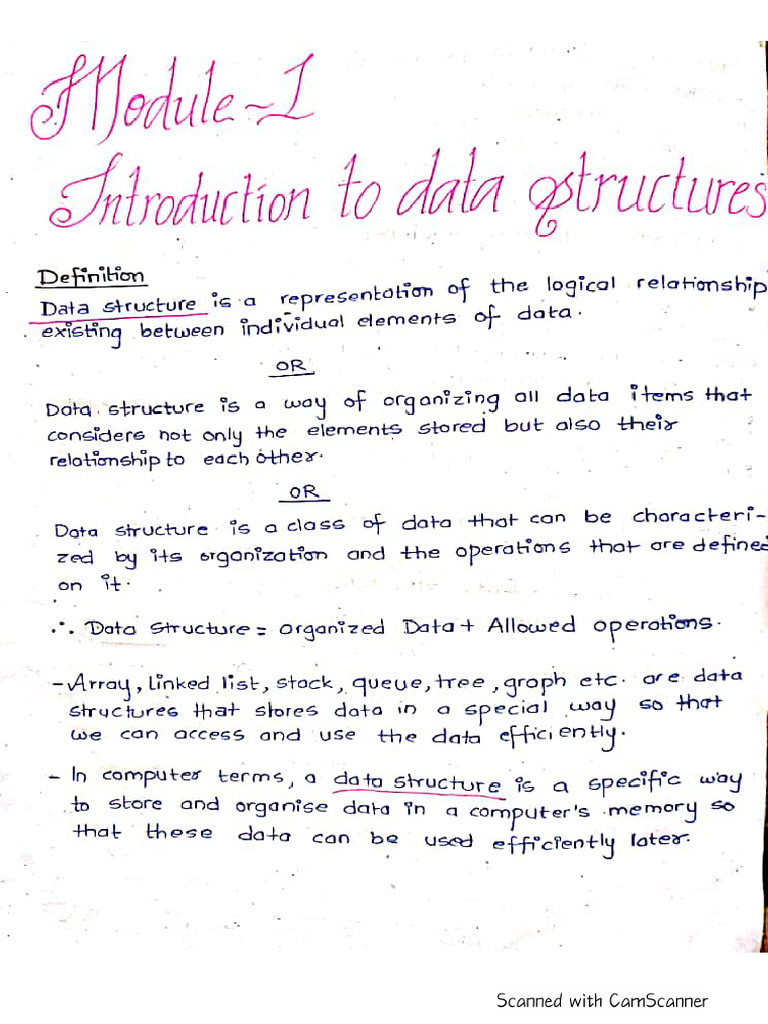 Module-1
Introduction to data structures
Definition
Data structure is a representation of the logical relationship
existing between individual elements of data.
OR
Data structure is a way of organizing all data items that
considers not only the elements stored but also their
relationship to each other.
OR
Data structure is a class of data that can be characteri-
zed by its organization and the operations that are defined
on it.
∴ Data Structure = Organized Data + Allowed operations.
- Array, linked list, stack, queue, tree, graph etc. are data
structures that stores data in a special way so that
we can access and use the data efficiently.
- In computer terms, a data structure is a specific way
to store and organise data in a computer's memory so
that these data can be used efficiently later.
Scanned with CamScanner